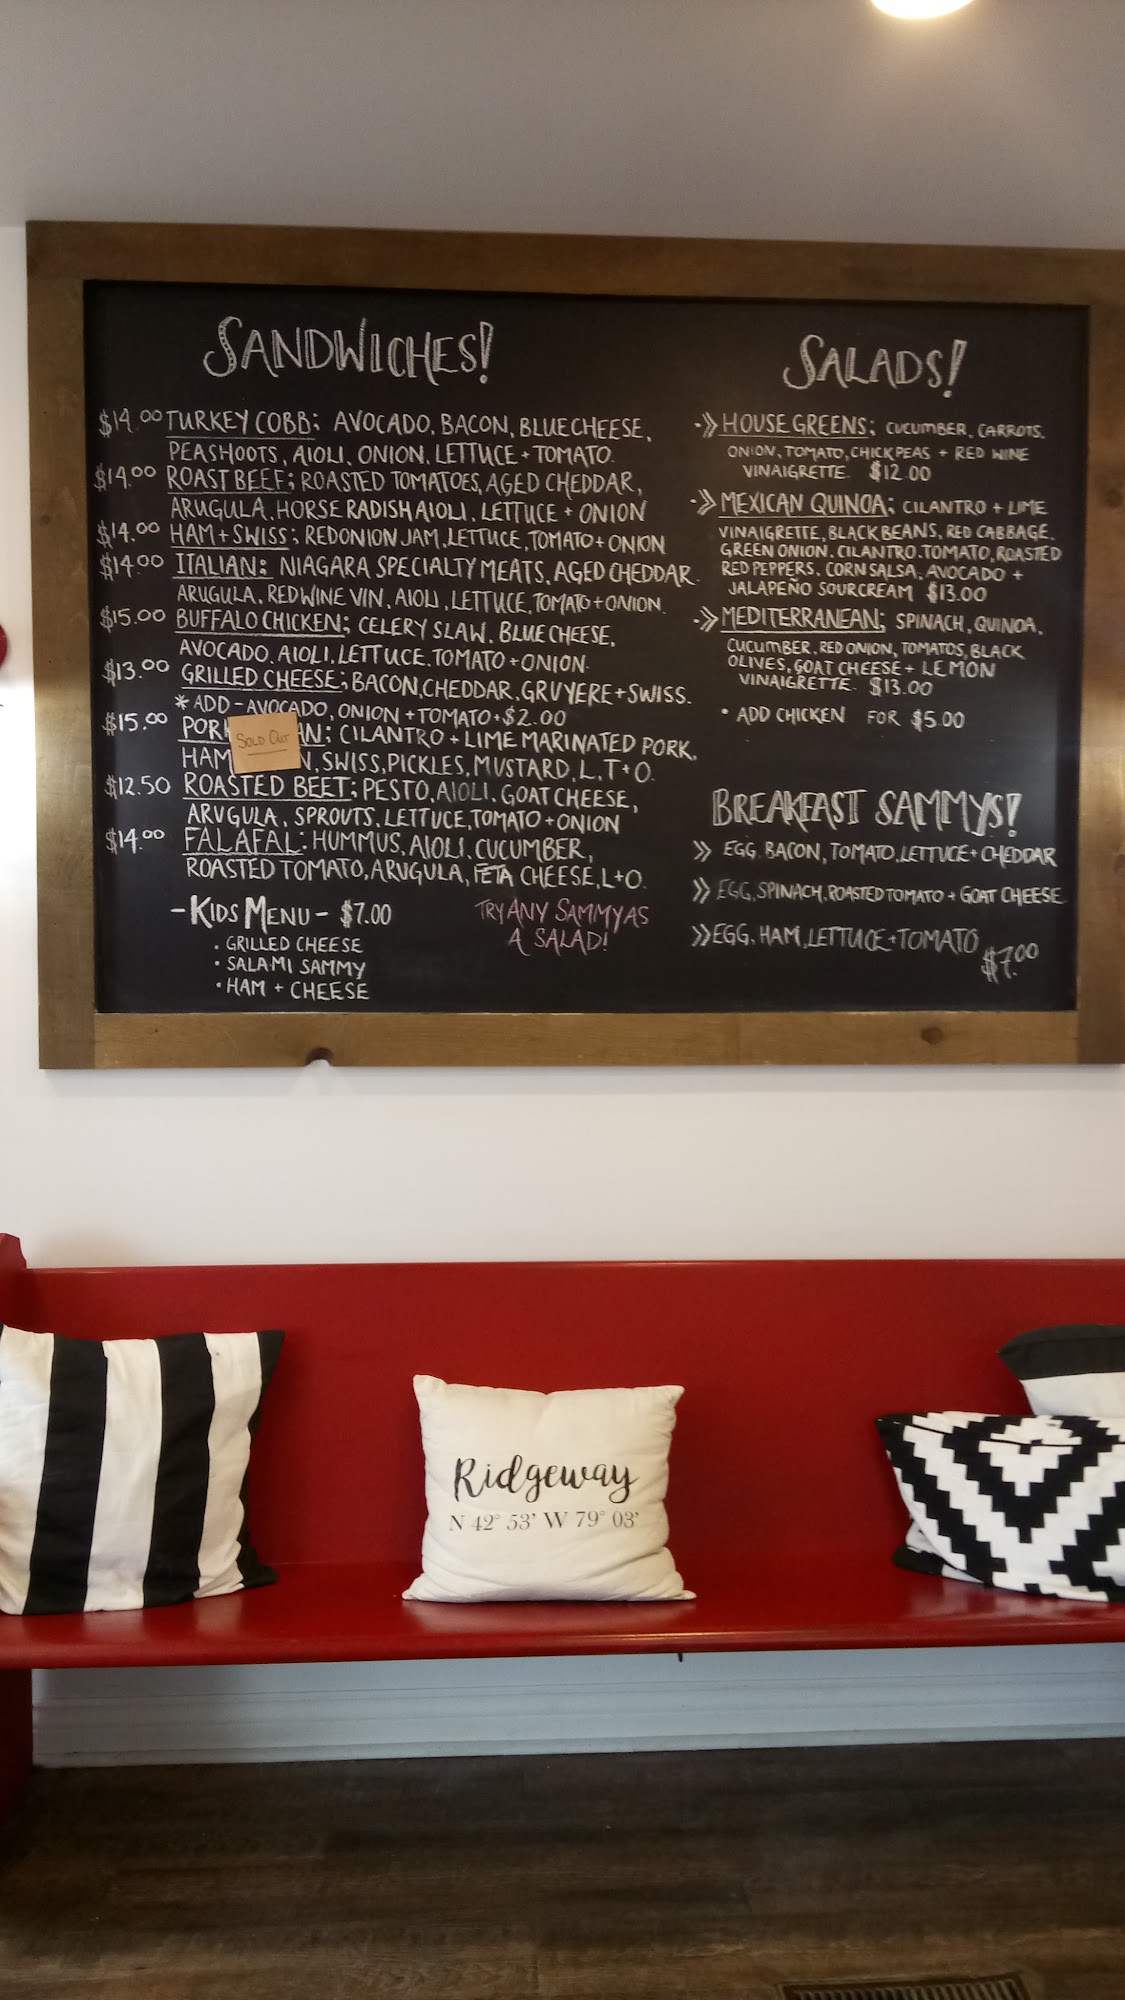 SANDWICHES!
$14.00 TURKEY COBB; AVOCADO, BACON, BLUE CHEESE,
PEASHOOTS, AIOLI, ONION, LETTUCE + TOMATO.
$14.00 ROAST BEEF; ROASTED TOMATOES, AGED CHEDDAR,
ARUGULA, HORSE RADISH AIOLI, LETTUCE + ONION
$14.00 HAM + SWISS; RED ONION JAM, LETTUCE, TOMATO + ONION
$14.00 ITALIAN: NIAGARA SPECIALTY MEATS, AGED CHEDDAR
ARUGULA, RED WINE VIN, AIOLI, LETTUCE, TOMATO + ONION.
$15.00 BUFFALO CHICKEN; CELERY SLAW, BLUE CHEESE,
AVOCADO, AIOLI, LETTUCE, TOMATO + ONION.
$13.00 GRILLED CHEESE; BACON, CHEDDAR, GRUYERE + SWISS.
* ADD - AVOCADO, ONION + TOMATO + $2.00
$15.00 PORK AN: CILANTRO + LIME MARINATED PORK,
SOLD OUT
HAM N, SWISS, PICKLES, MUSTARD, L, T + O.
$12.50 ROASTED BEET; PESTO, AIOLI, GOAT CHEESE,
ARVGULA, SPROUTS, LETTUCE, TOMATO + ONION
$14.00 FALAFAL: HUMMUS, AIOLI, CUCUMBER,
ROASTED TOMATO, ARUGULA, FETA CHEESE, L + O.
- KIDS MENU - $7.00
• GRILLED CHEESE
• SALAMI SAMMY
• HAM + CHEESE
TRY ANY SAMMY AS
A SALAD!
SALADS!
HOUSE GREENS; CUCUMBER, CARROTS,
ONION, TOMATO, CHICKPEAS + RED WINE
VINAIGRETTE. $12.00
MEXICAN QUINOA; CILANTRO + LIME
VINAIGRETTE, BLACK BEANS, RED CABBAGE,
GREEN ONION, CILANTRO, TOMATO, ROASTED
RED PEPPERS, CORN SALSA, AVOCADO +
JALAPEÑO SOURCREAM $13.00
MEDITERRANEAN; SPINACH, QUINOA,
CUCUMBER, RED ONION, TOMATOS, BLACK
OLIVES, GOAT CHEESE + LEMON
VINAIGRETTE. $13.00
• ADD CHICKEN FOR $5.00
BREAKFAST SAMMYS!
» EGG, BACON, TOMATO, LETTUCE + CHEDDAR
» EGG, SPINACH, ROASTED TOMATO + GOAT CHEESE
» EGG, HAM, LETTUCE + TOMATO
$7.00
Ridgeway
N 42° 53' W 79° 03'